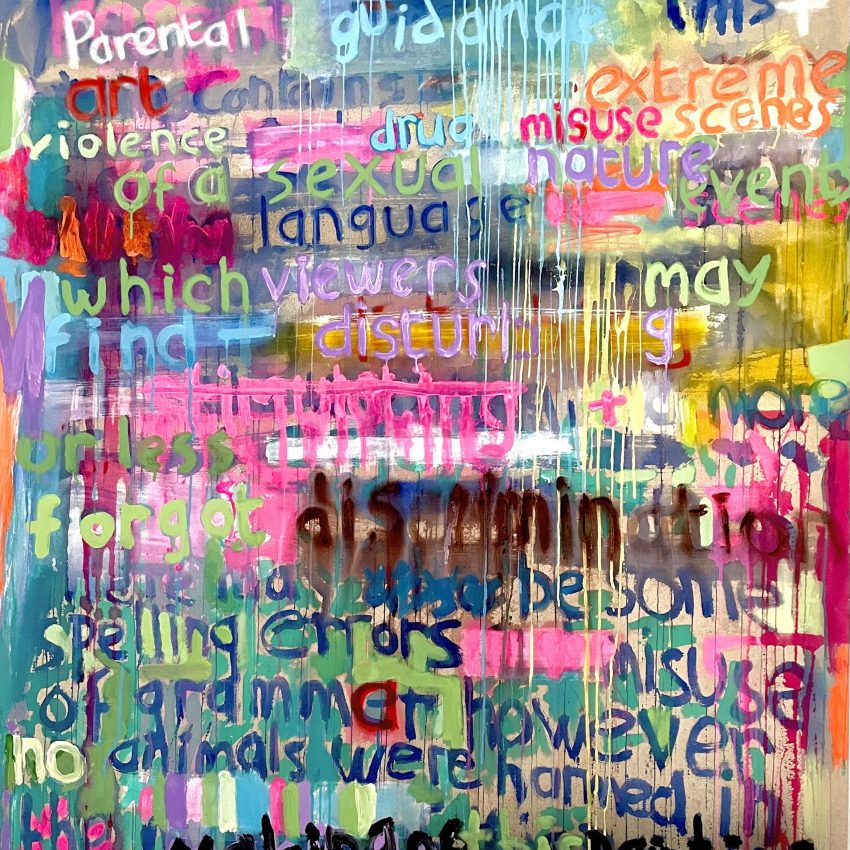 Parental guidance this
art contains extreme
violence drug misuse scenes
of a sexual nature event
language scenes
which viewers may
find disturb g
+ a more
or less
forgot discrimination
be some
spelling errors
misuse
of grammar however
no animals were harmed in
the